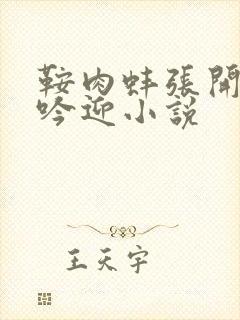 鞍肉蚌張開
吟迎小說
王天宇